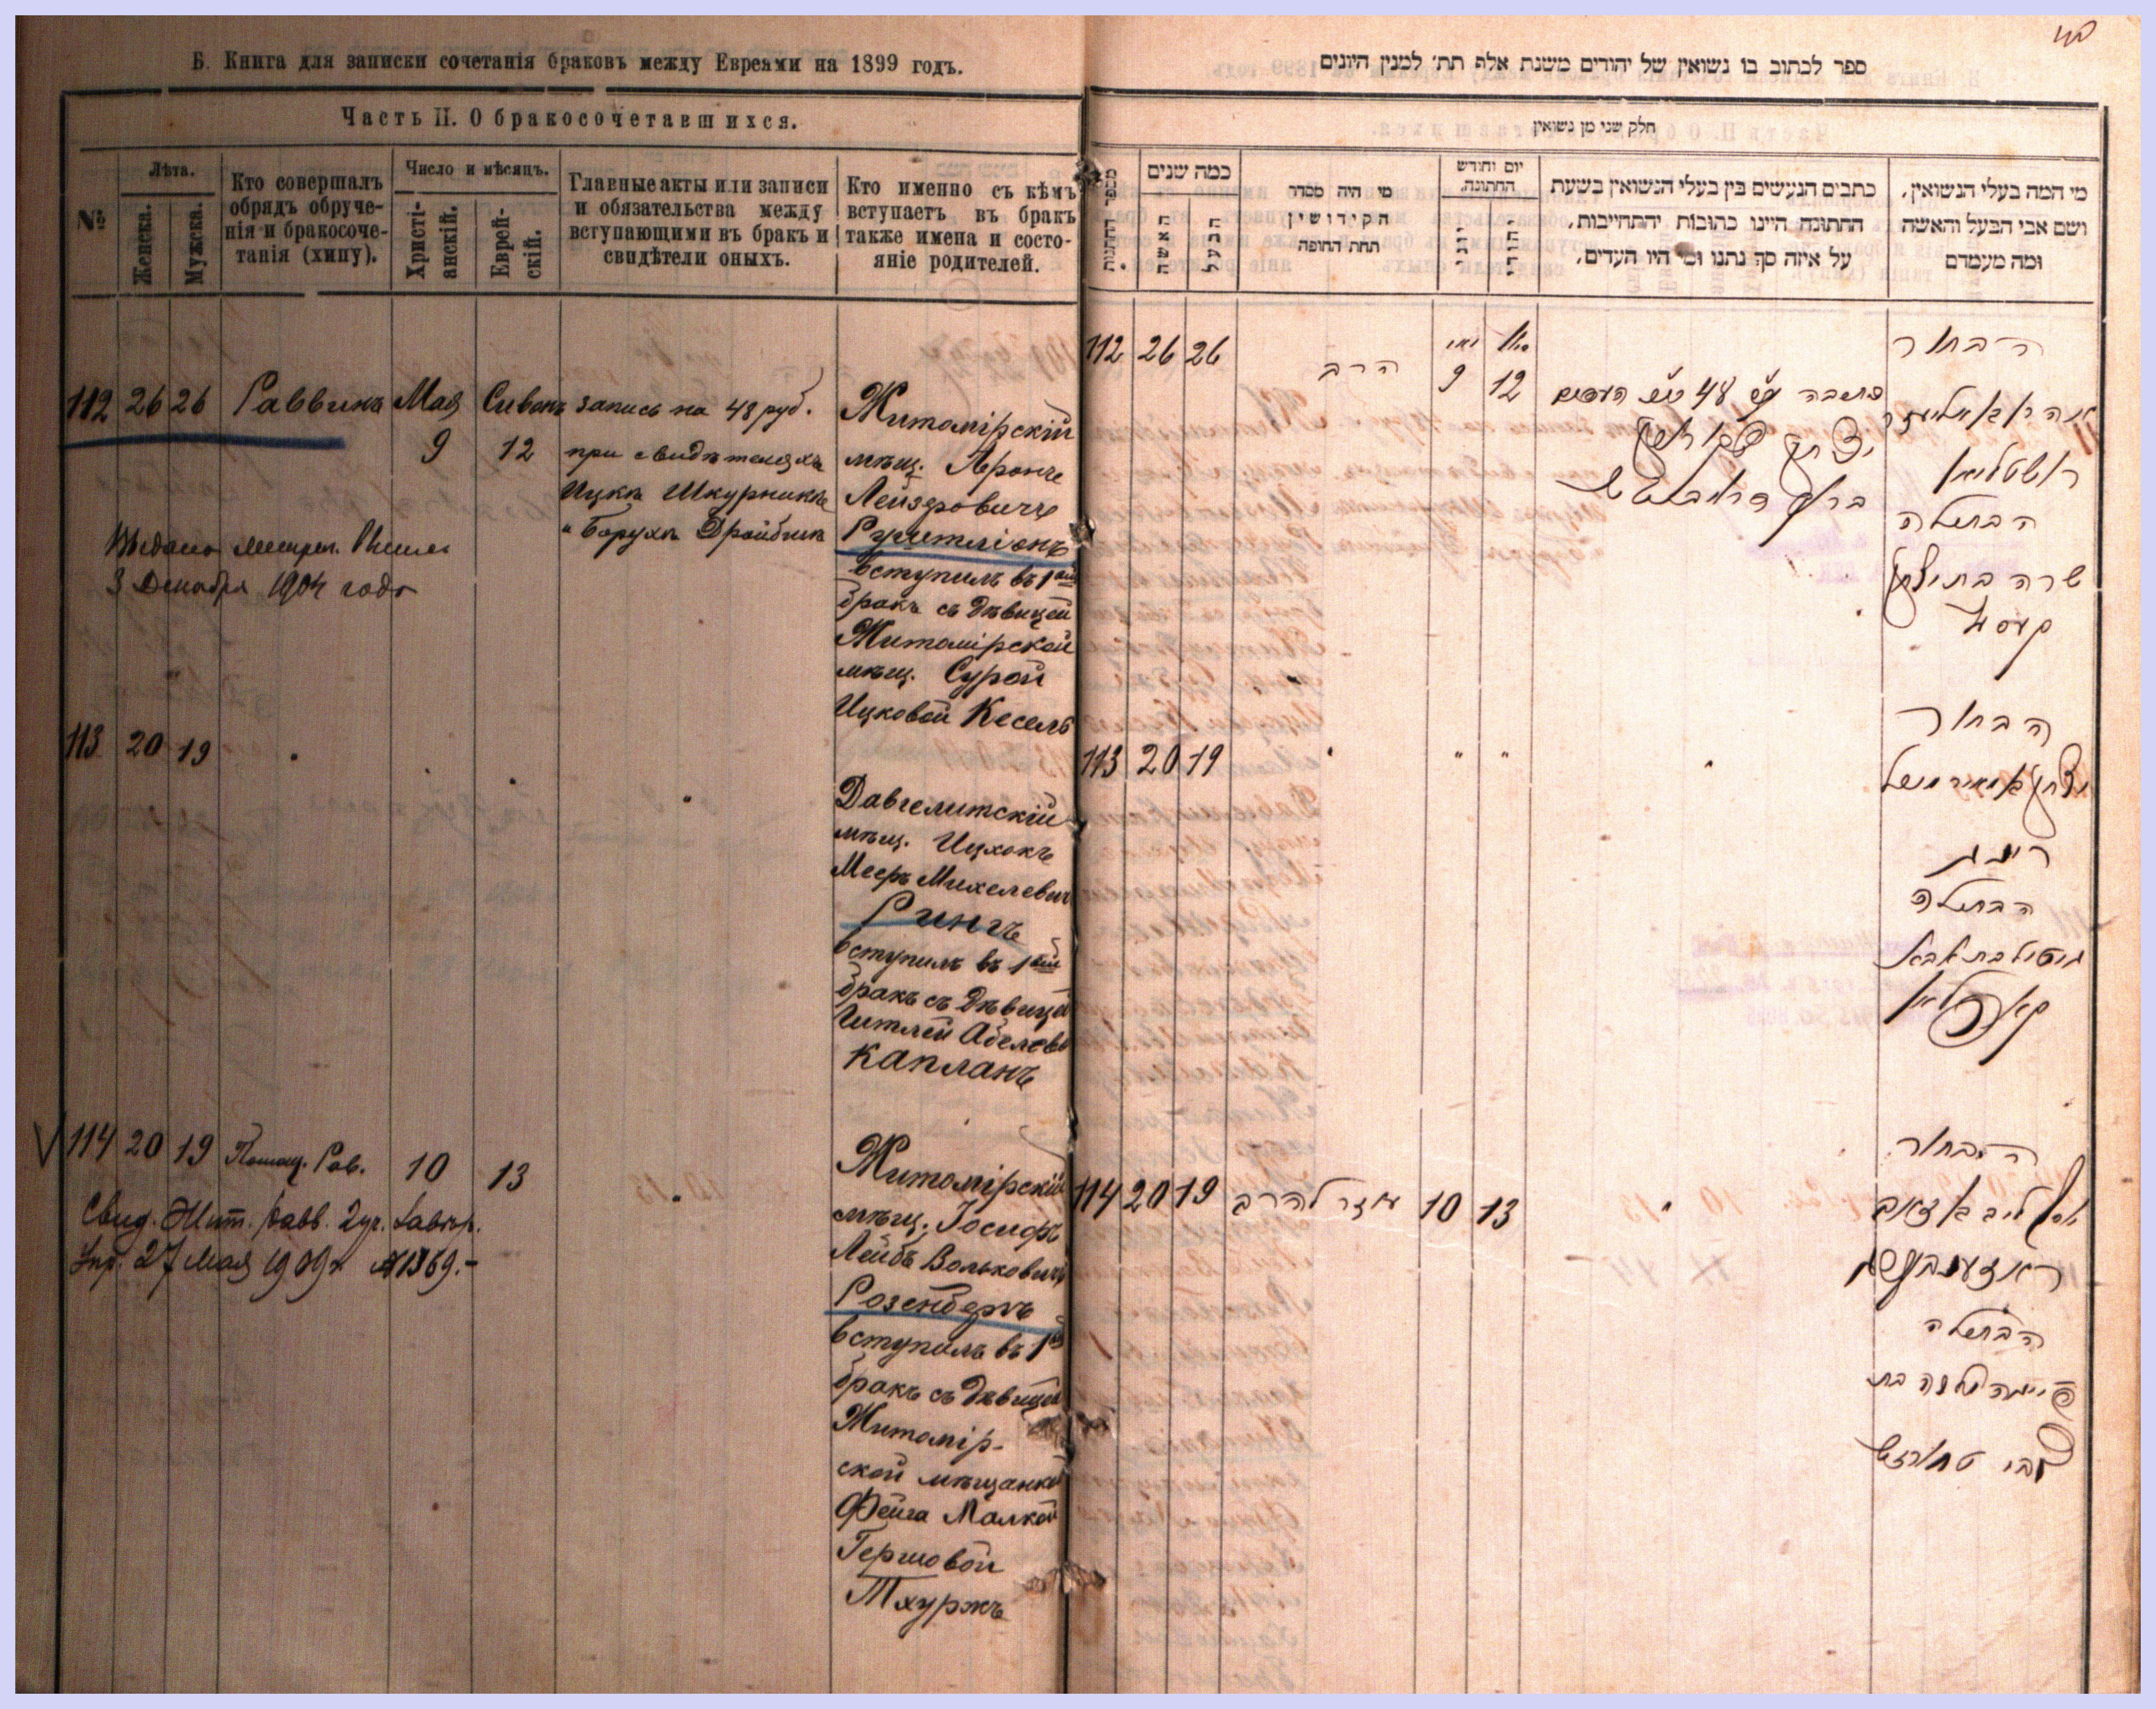 Б. Книга для записки сочетанія браковъ между Евреями на 1899 годъ.
Часть II. О бракосочетавшихся.
№
Лѣта.
Женска.
Мужска.
Кто совершалъ
обрядъ обруче-
нія и бракосоче-
танія (хипу).
Число и мѣсяцъ.
Христі-
анскій.
Еврей-
скій.
Главные акты или записи
и обязательства между
вступающими въ бракъ и
свидѣтели оныхъ.
Кто именно съ кѣмъ
вступаетъ въ бракъ
также имена и состо-
яніе родителей.
112 26 26 Раввинъ Мая Сиванъ запись на 48 руб.
9 12 при свидѣтеляхъ
Ицка Шкурника
Боруха Дройбика
Житомірскій
мѣщ. Аронъ
Лейзеровичъ
вступилъ въ 1ый
бракъ съ дѣвицей
Житомірской
мѣщ. Сурой
Ицковой Кесель
Выдано метрич.
3 Декабря 1904 года
113 20 19
Давгелитскій
мѣщ. Ицхокъ
Мееръ Михелевич
Рингъ
вступилъ въ 1ый
бракъ съ дѣвицей
Гитлей Абелевой
Капланъ
114 20 19 Помощ. Рав. 10 13
Свид. Жит. равв.
27 Мая 1909 г. № 1369.
Житомірскій
мѣщ. Іосифъ
Лейбъ Вольковичъ
Розенбергъ
вступилъ въ 1ый
бракъ съ дѣвицей
Житомір-
ской мѣщанкой
Фейга Малкой
Гершовой
Тхуржъ
ספר לכתוב בו נשואין של יהודים משנת אלף תת׳ למנין היונים
חלק שני מן נשואין
מספר החתונות
כמה שנים
האשה
הבעל
מי היה מסדר
הקידושין
תחת החופה
יום וחודש
החתונה.
יוני
יהודי
כתבים הנעשים בין בעלי הנשואין בשעת
החתונה היינו כתובות יהתחייבות,
על איזה סך נתנו ומי היו העדים,
מי המה בעלי הנשואין,
ושם אבי הבעל והאשה
ומה מעמדם
112 26 26 הרב
9 12
הבחור
הבתולה
שרה בת יצחק
קעסל
113 20 19
הבחור
רינג
הבתולה
גיטל בת אבא
קאפלאן
114 20 19 עוזר להרב 10 13
הבחור
ראזענבערג
הבתולה